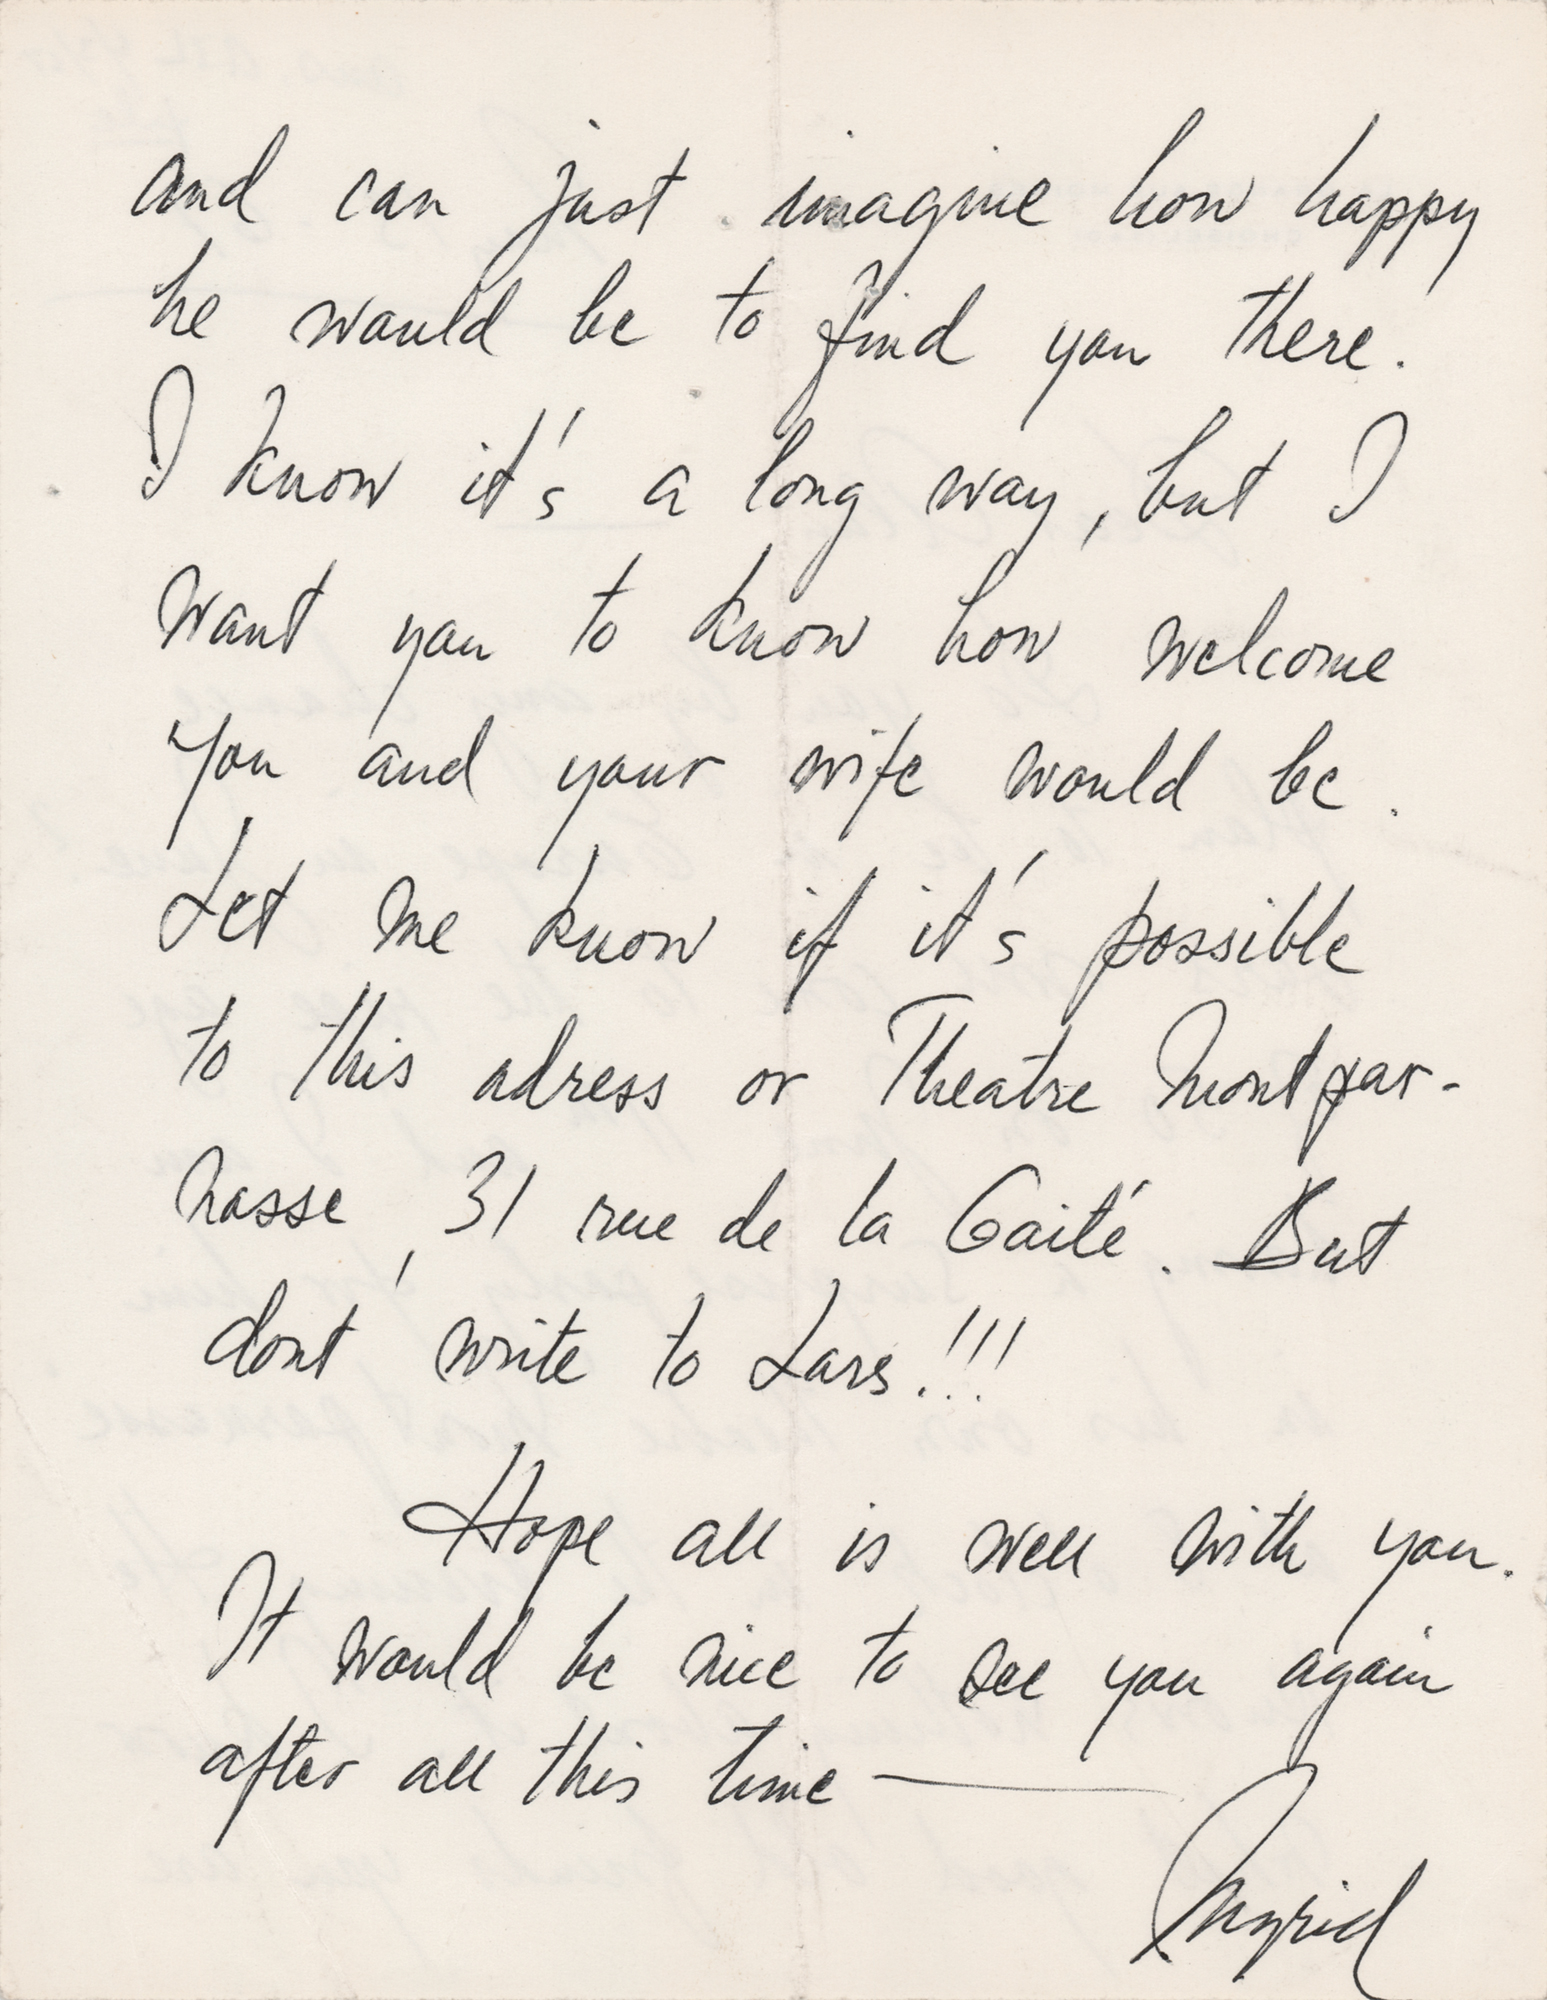 and can just imagine how happy
he would be to find you there.
I know it's a long way, but I
want you to know how welcome
you and your wife would be.
Let me know if it's possible
to this adress or Theatre Montpar-
nasse, 31 rue de la Gaité. But
dont' write to Lars!!!
Hope all is well with you.
It would be nice to see you again
after all this time —
Ingrid